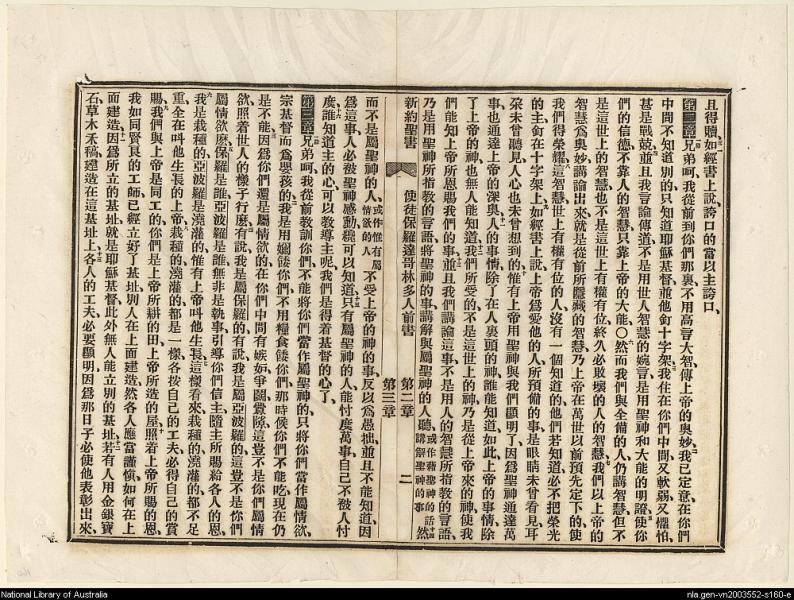 且得贖如經書上說誇口的當以主誇口
第二章兄弟呵我從前到你們那裏不用高言大智傳上帝的奧妙我已定意在你們
中間不知道別的只知道耶穌基督並他釘十字架我住在你們中間又軟弱又懼怕
甚是戰兢並且我言論傳道不是用世人智慧的婉言是用聖神和大能的明證使你
們的信德不靠人的智慧只靠上帝的大能○然而我們與全備的人仍講智慧但不
是這世上的智慧也不是這世上有權有位終久必敗壞的人的智慧我們以上帝的
智慧爲奧妙講論出來就是從前所隱藏的智慧乃上帝在萬世以前預先定下的使
我們得榮耀這智慧世上有權有位的人沒有一個知道的他們若知道必不把榮光
的主釘在十字架上如經書上說上帝爲愛他的人所預備的事是眼睛未曾看見耳
朶未曾聽見人心也未曾想到的惟有上帝用聖神與我們顯明了因爲聖神通達萬
事也通達上帝的深奧人的事情除了在人裏頭的神誰能知道如此上帝的事情除
了上帝的神也無人能知道我們所受的不是這世上的神乃是從上帝來的神使我
們能知上帝所恩賜我們的事並且我們講論這事不是用人的智慧所指教的言語
乃是用聖神所指教的言語將聖神的事講解與屬聖神的人聽或作藉聖神的話講解聖神的事然
新約聖書 使徒保羅達哥林多人前書 第二章 第三章 二
而不是屬聖神的人或作惟有屬情慾的人不受上帝的神的事反以爲愚拙並且不能知道因
爲這事人必被聖神感動纔可以知道只有屬聖神的人能忖度萬事自己不被人忖
度誰知道主的心可以教導主呢我們是得着基督的心了
第三章兄弟呵我從前教訓你們不能將你們當作屬聖神的只將你們當作屬情欲
宗基督而爲嬰孩的我是用奶餧你們不用糧食餧你們那時候你們不能吃現在仍
是不能因爲你們還是屬情慾的在你們中間有嫉妒爭鬭分黨這豈不是你們屬情
欲照着世人的樣子行麽有說我是屬保羅的有說我是屬亞波羅的這豈不是你們
屬情欲麽保羅是誰亞波羅是誰無非是執事引導你們信主隨主所賜給各人的恩
我是栽種的亞波羅是澆灌的惟有上帝叫他生長這樣看來栽種的澆灌的都不足
重全在叫他生長的上帝栽種的澆灌的都是一樣各按自己的工夫必得自己的賞
賜我們與上帝是同工的你們是上帝所耕的田上帝所造的屋照着上帝所賜的恩
我如同賢良的工師已經立好了基址別人在上面建造然各人應當謹慎如何在上
面建造因爲所立的基址就是耶穌基督此外無人能立別的基址若有人用金銀寶
石草木禾稿建造在這基址上各人的工夫必要顯明因爲那日子必使他表彰出來
National Library of Australia
nla.gen-vn2003552-s160-e